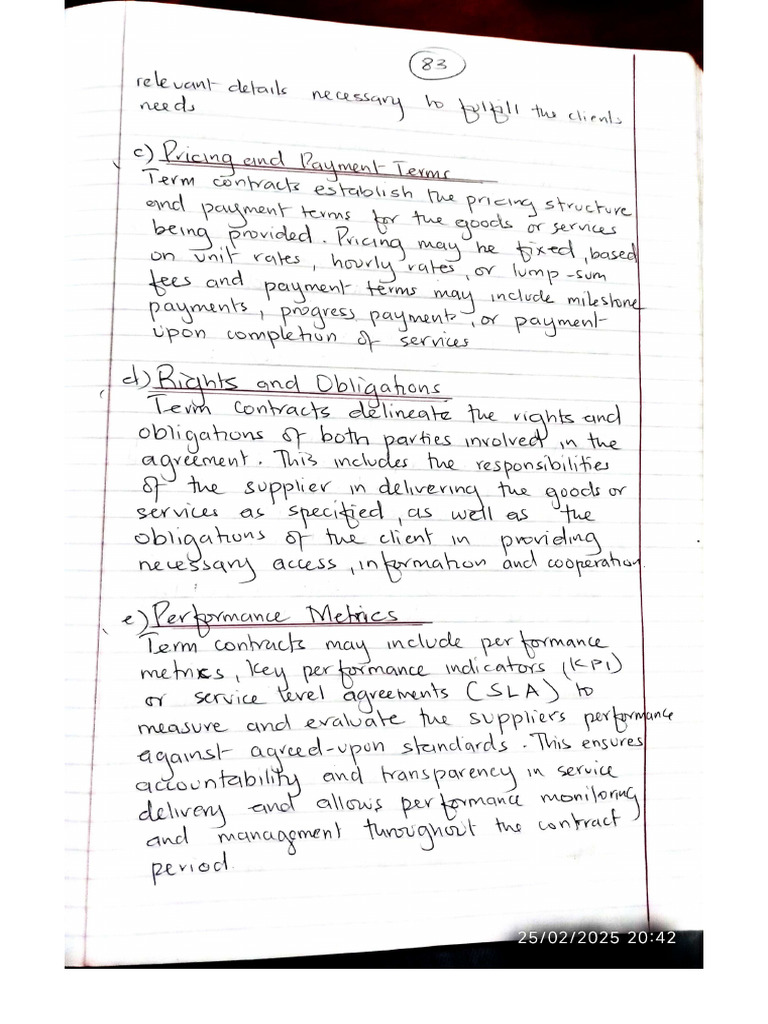 83
relevant details necessary to fulfill the clients
needs
c) Pricing and Payment Terms
Term contracts establish the pricing structure
and payment terms for the goods or services
being provided. Pricing may be fixed, based
on unit rates, hourly rates, or lump-sum
fees and payment terms may include milestone
payments, progress payments, or payment
upon completion of services
d) Rights and Obligations
Term contracts delineate the rights and
obligations of both parties involved in the
agreement. This includes the responsibilities
of the supplier in delivering the goods or
services as specified, as well as the
obligations of the client in providing
necessary access, information and cooperation.
e) Performance Metrics
Term contracts may include performance
metrics, key performance indicators (KPI)
or service level agreements (SLA) to
measure and evaluate the suppliers performance
against agreed-upon standards. This ensures
accountability and transparency in service
delivery and allows performance monitoring
and management throughout the contract
period.
25/02/2025 20:42